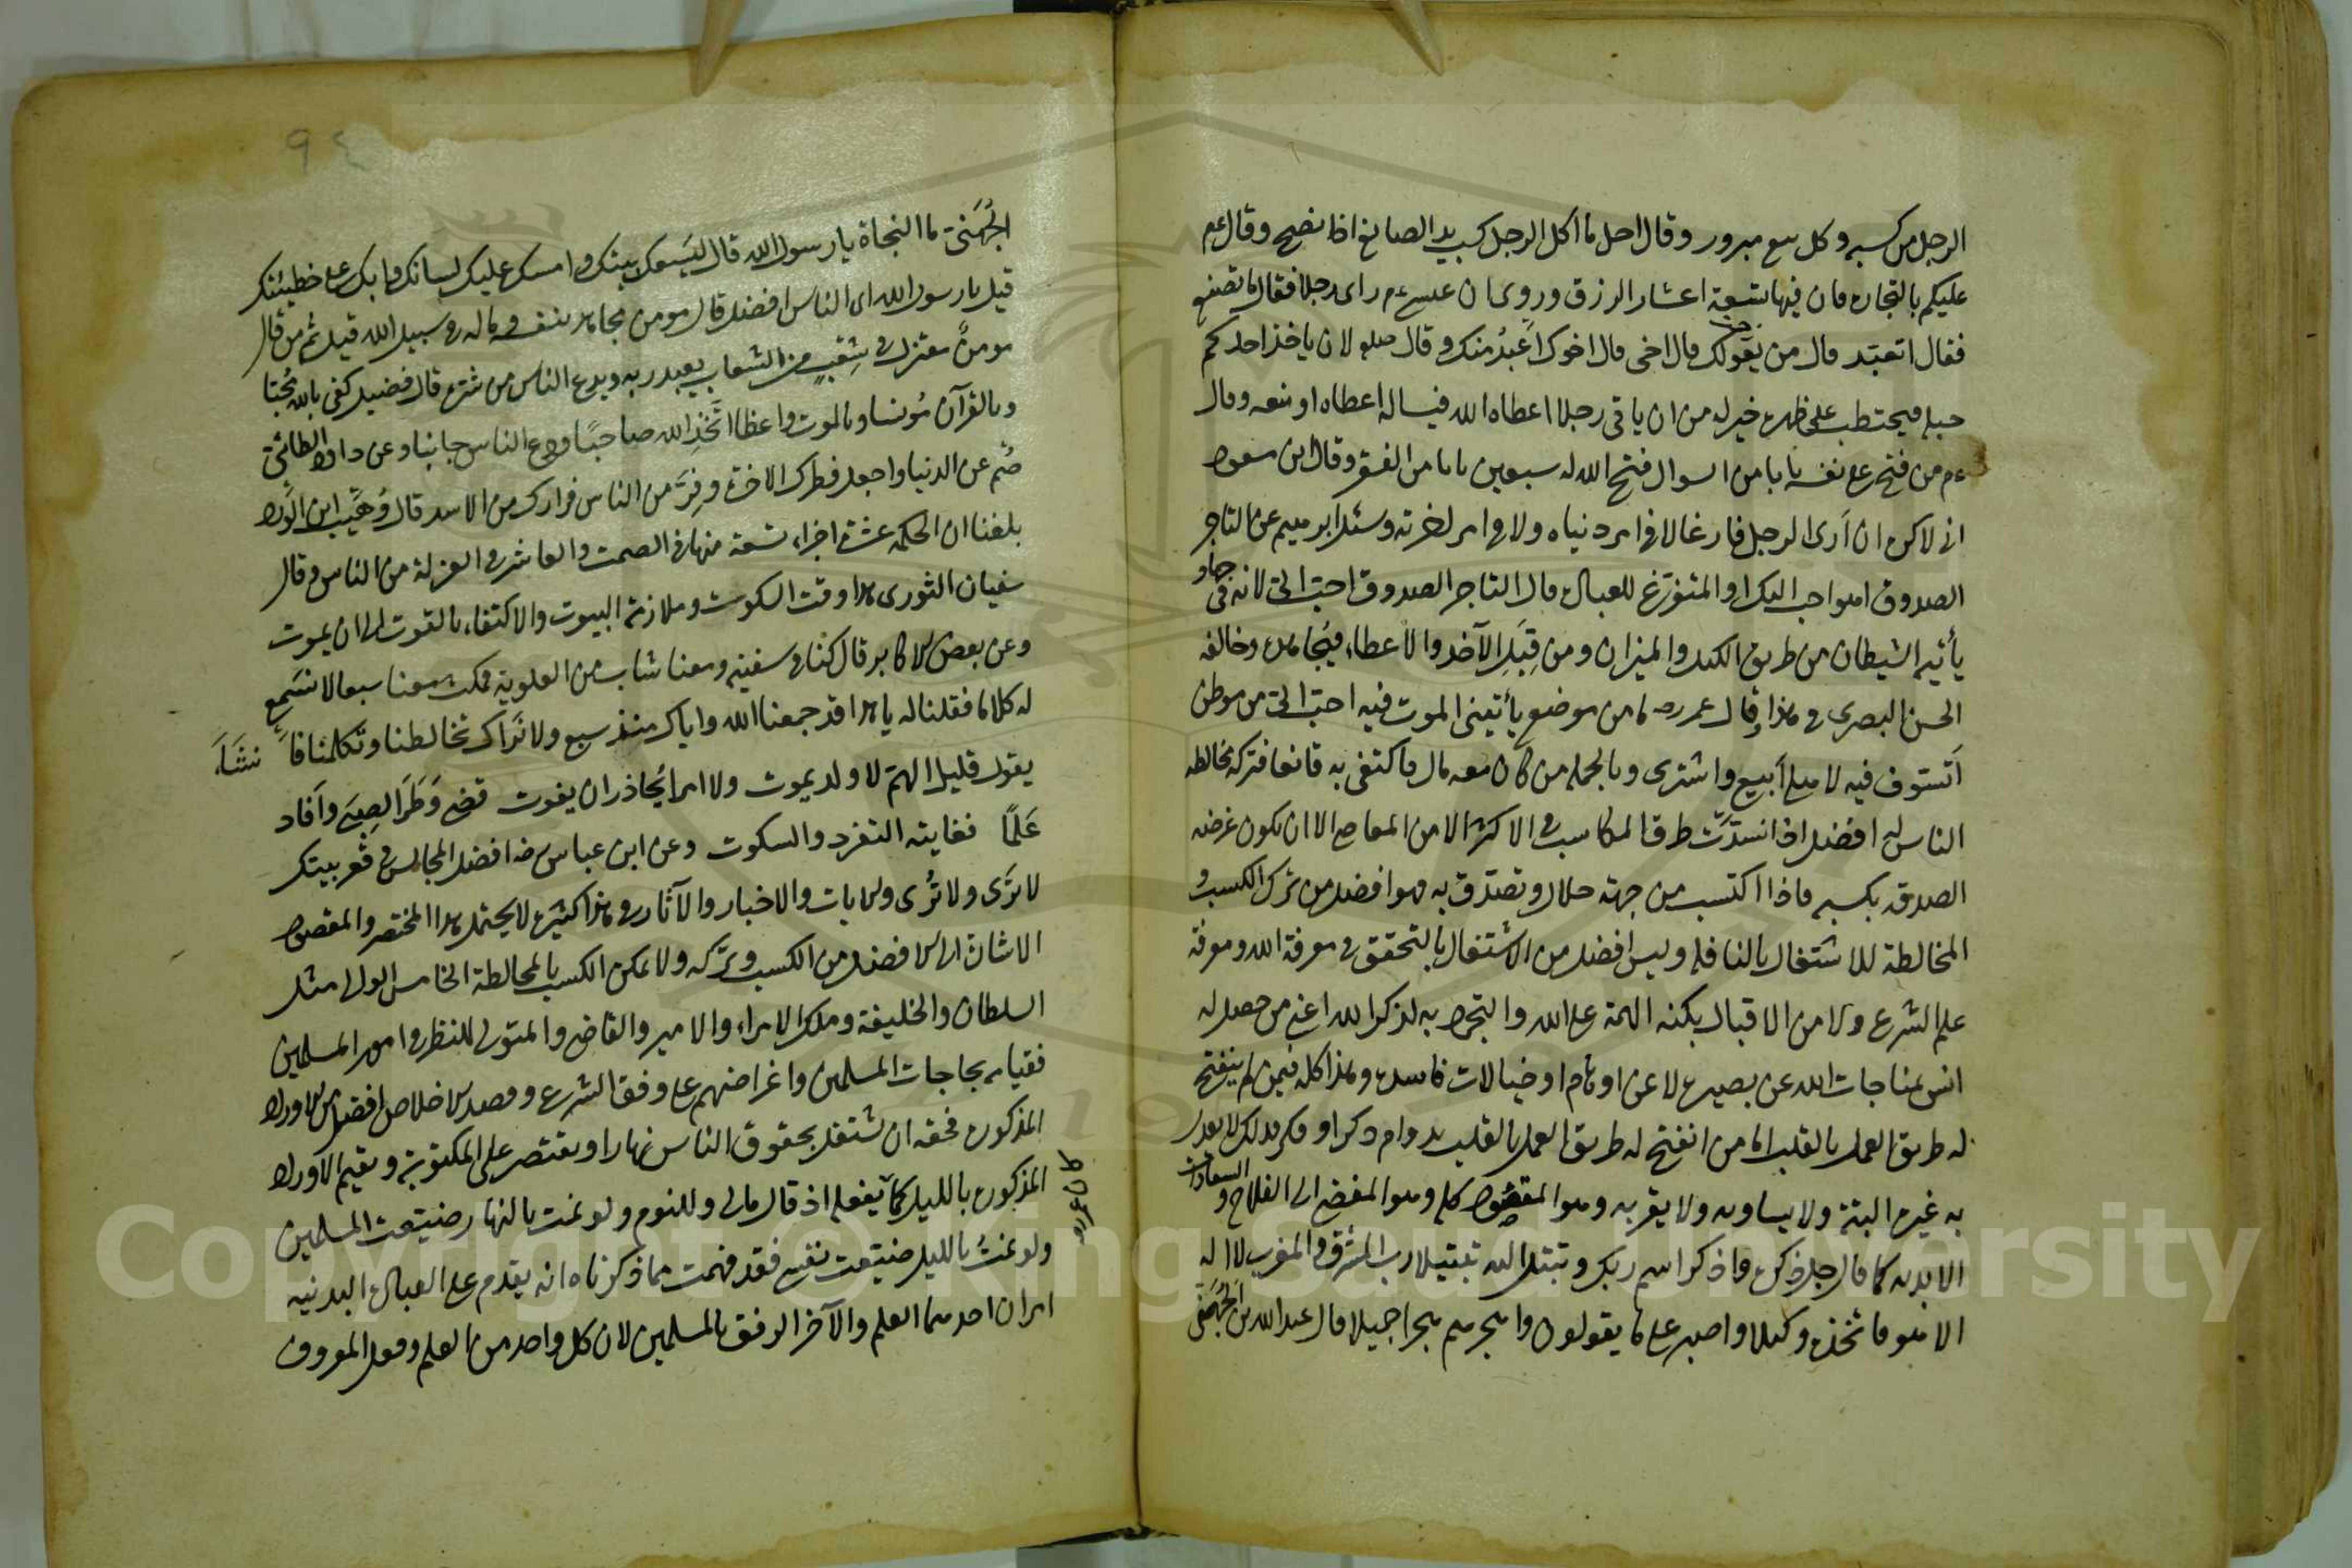 الرجل من كسبه وكل بيع مبرور وقال احل ما اكل الرجل كسب يد الصانع اذا نصح وقال عم
عليكم بالتجارة فان فيها تسعة اعشار الرزق وروى ان عيسى عم راى رجلا فقال ما تصنع
فقال اتعبد قال من يقولك قال اخى قال اخوك اَعبدُ منك وقال صلعم لان ياخذ احدكم
حبله فيحتطب على ظهره خير له من ان ياتى رجلا اعطاه الله فيساله اعطاه او منعه وقال
عم من فتح على نفسه بابا من السوال فتح الله له سبعين بابا من الفقر وقال ابن مسعود
انى لاكره ان اَرى الرجل فارغا لا فى امر دنياه ولا فى امر اخرته وسئل ابرهيم عن التاجر
الصدوق اهو احب اليك او المتفرّغ للعبادة قال التاجر الصدوق احبّ الىّ لانه فى جهاد
يأتيه الشيطان من طريق الكيل والميزان ومن قِبَلِ الآخذ والاعطاء فيُجاهده وخالفه
الحسن البصرى فى هذا وقال عمر رضه ما من موضع يأتينى الموت فيه احبّ الىّ من موطن
اَتسوق فيه لاهلى اَبيع واشترى وبالجملة من كان معه مال فاكتفى به قانعا فتركه مخالطة
الناس له افضل اذ انسدّت طرق المكاسب فى الاكثر الا من المعاصى الا ان يكون غرضه
الصدقة بكسبه فاذا اكتسب من جهة حلال وتصدّق به فهو افضل من ترك الكسب و
المخالطة للاشتغال بالنافلة وليس افضل من الاشتغال بالتحقق فى معرفة الله ومعرفة
علم الشرع ولا من الاقبال بكنه الهمة على الله والتجرد به لذكر الله اعنى من حصل له
انس بمناجات الله عن بصيرة لا عن اوهام او خيالات فاسدة وهذا كله فيمن لم ينفتح
له طريق العمل بالقلب اما من انفتح له طريق العمل بالقلب بدوام ذكر او فكر فذلك لا يعدل
به غيره البتة ولا يساويه ولا يقربه وهو المقصود كله وهو المفضى الى الفلاح والسعادات
الابدية كما قال جل ذكره واذكر اسم ربك وتبتل اليه تبتيلا رب المشرق والمغرب لا اله
الا هو فاتخذه وكيلا واصبر على ما يقولون واهجرهم هجرا جميلا قال عبد الله بن الجُهَنىّ
٩٤
الجُهَنىّ ما النجاة يا رسول الله قال ليَسعك بيتك وامسك عليك لسانك وابك على خطيئتك
قيل يا رسول الله اى الناس افضل قال مومن مجاهد بنفسه وماله فى سبيل الله قيل ثم من قال
مومنٌ معتزل فى شِعْبٍ من الشعاب يعبد ربه ويدع الناس من شره قال فضيل كفى بالله مُحبّا
وبالقرآن مُونسا وبالموت واعظا اتّخذِ الله صاحبًا ودع الناس جانبا وعن داود الطائىّ
صُم عن الدنيا واجعل فطرك الاخرة وفِرَّ من الناس فرارك من الاسد قال وُهَيب ابن الوَرد
بلغنا ان الحكمة عشرة اجزاء تسعة منها فى الصمت والعاشر فى العزلة من الناس وقال
سفيان الثورى هذا وقت السكوت وملازمة البيوت والاكتفاء بالقوت الى ان يموت
وعن بعض الاكابر قال كنا فى سفينة ومعنا شاب من العلوية فمكث معنا سبعا لا نسَمع
له كلاما فقلنا له يا هذا قد جمعنا الله واياك منذ سبع ولا نَراك تخالطنا وتكلمنا فانشَأَ
يقول قليل الهمّ لا ولد يموت ولا امرا يُحاذر ان يفوت قضى وَطَرَ الصِبَى وأفاد
عَلمًا فغايته التفرد والسكوت وعن ابن عباس رضه افضل المجالس فى قعر بيتك
لا تَرَى ولا تُرى والايات والاخبار والآثار فى هذا كثيرة لا يحتمل هذا المختصر والمقصود
الاشارة الى الافضل من الكسب وتركه ولا يمكن الكسب بالمخالطة الخامس الوالى مثل
السلطان والخليفة وملك الامراء والامير والقاضى والمتولى للنظر فى امور المسلمين
فقيامه بحاجات المسلمين واغراضهم على وفق الشرع وقصد الاخلاص افضل من الاوراد
المذكورة فحقه ان يشتغل بحقوق الناس نهارا ويقتصر على المكتوبة ويقيم الاوراد
المذكورة بالليل كما يفعله اذ قال مالى وللنوم ولو نمت بالنهار ضيّعت المسلمين
كان عمر
ولو نمتُ بالليل ضيّعت نفسى فقد فهمت مما ذكرناه انه يقدم على العبادة البدنية
امران احدهما العلم والآخر الرفق بالمسلمين لان كل واحد من العلم وفعل المعروف